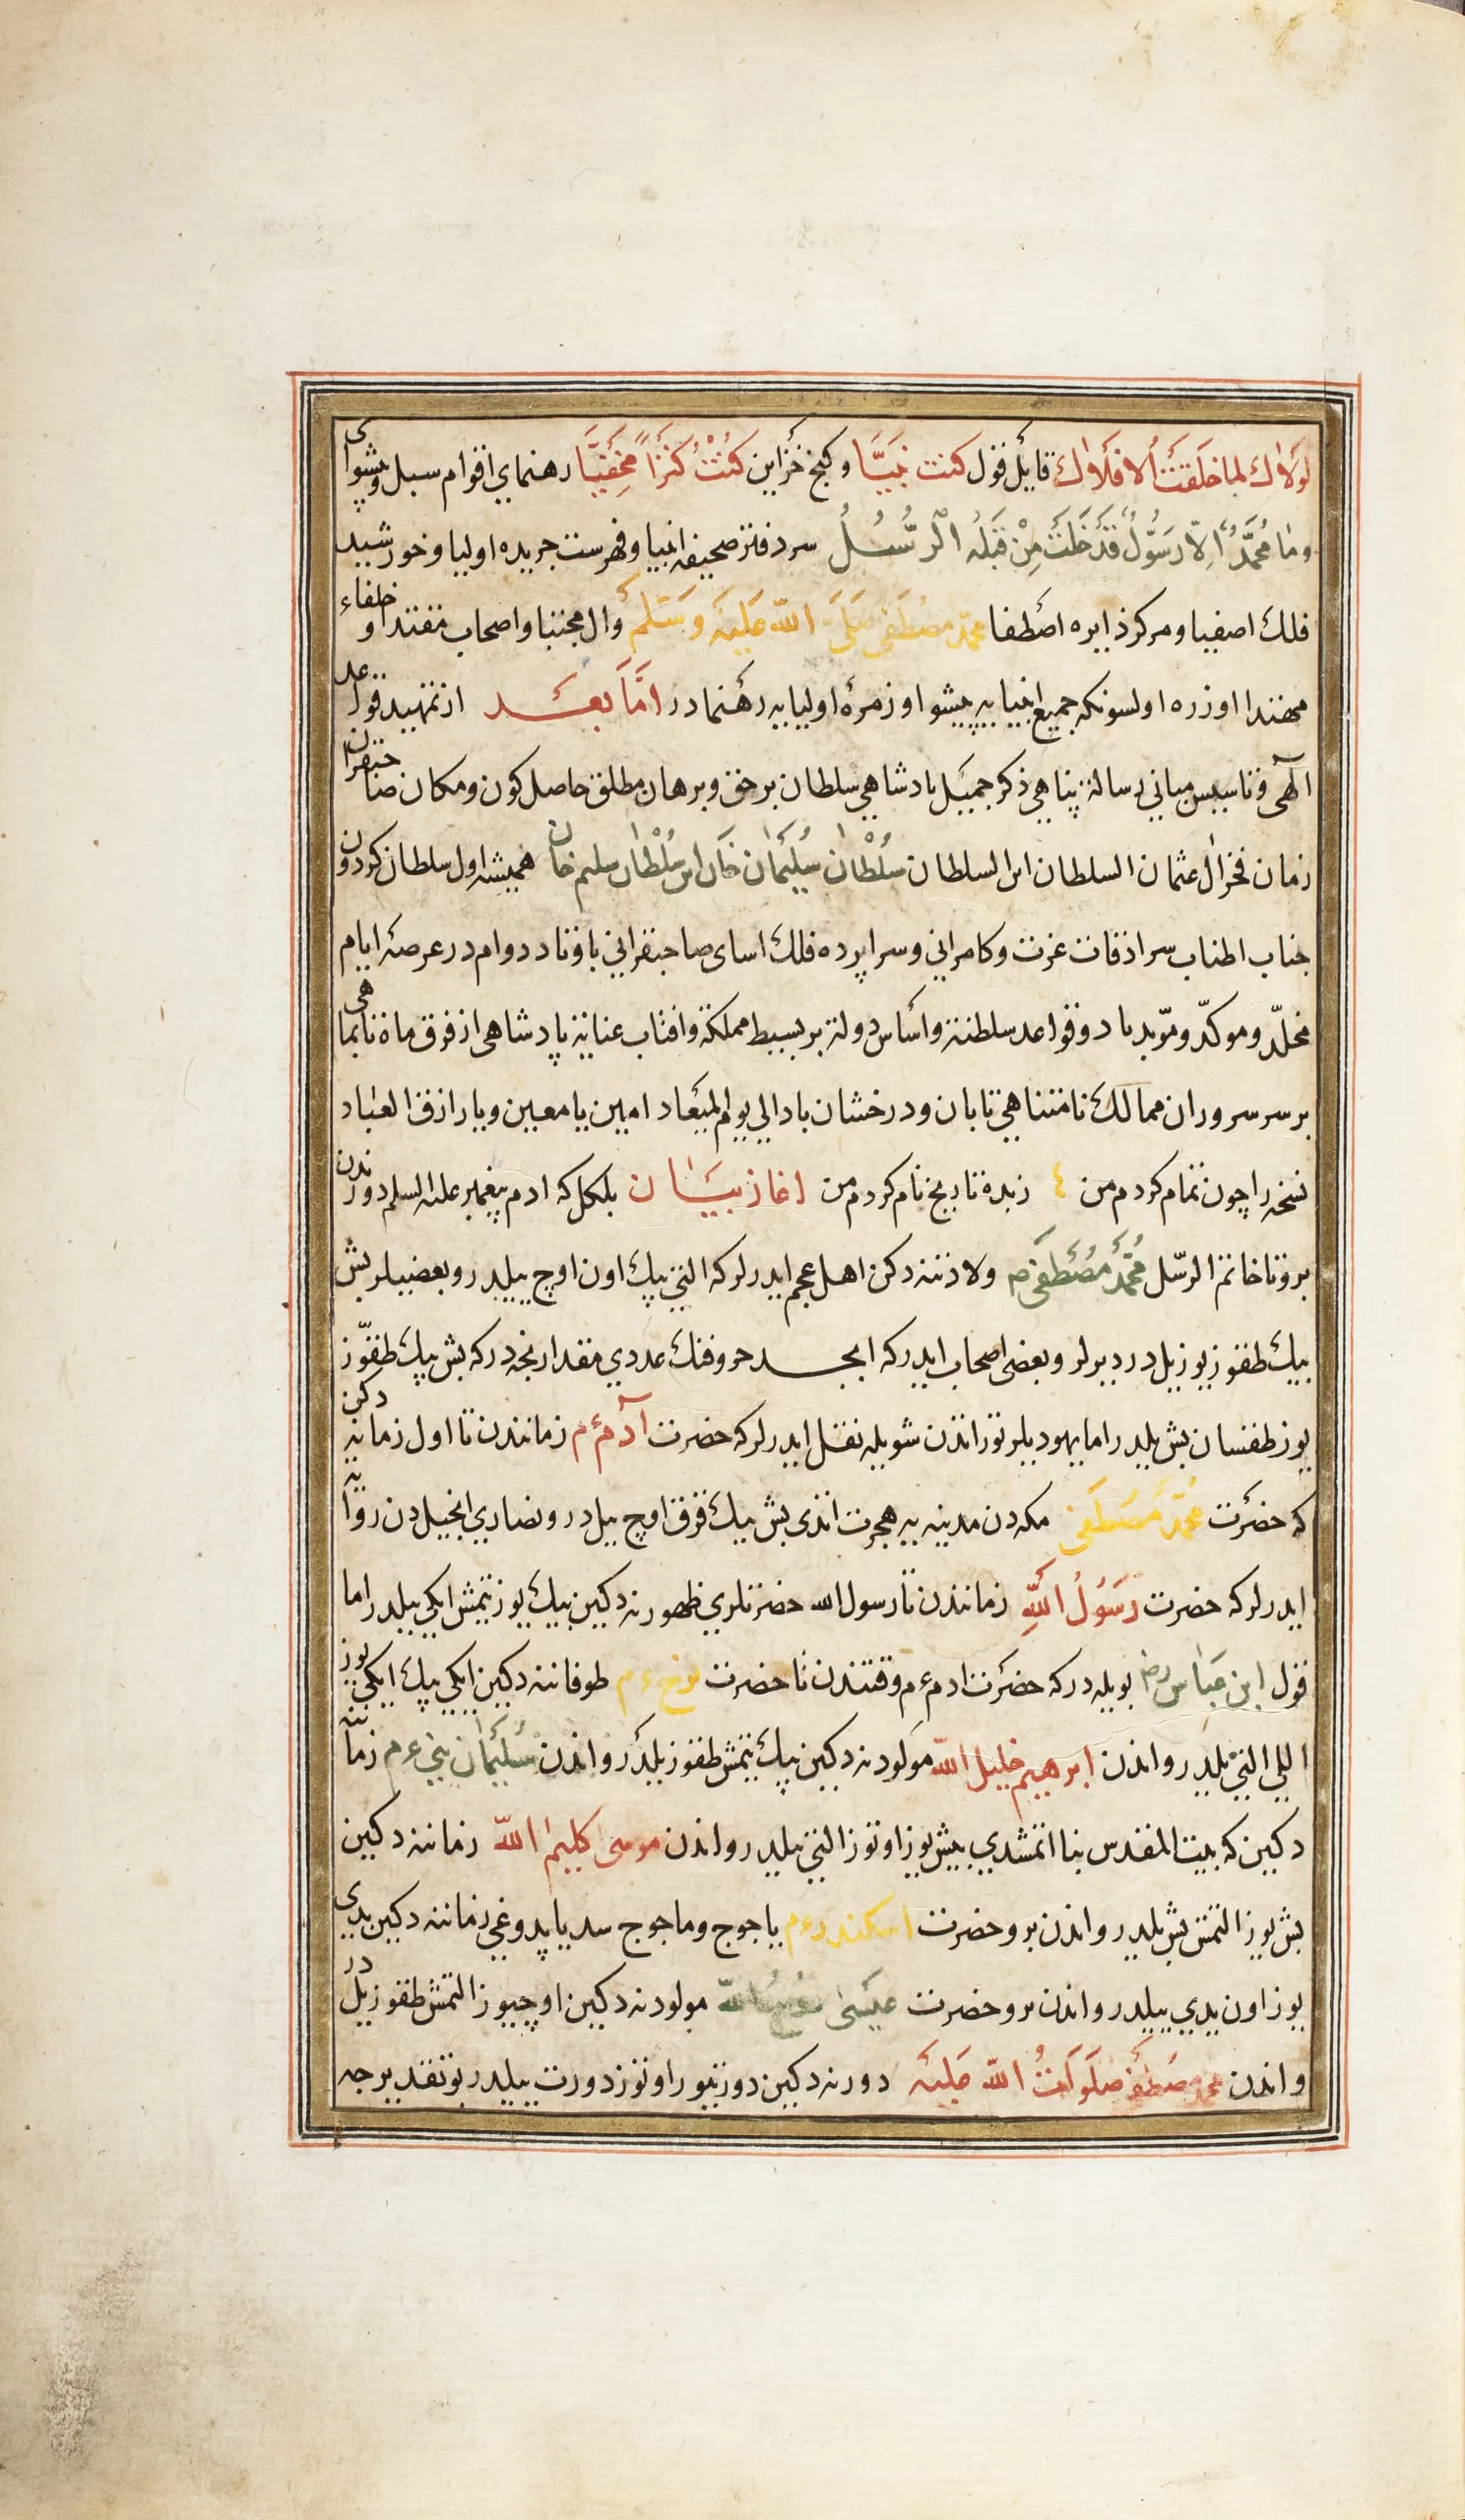 لولاك لما خلقت الافلاك قايل قول كنت نبيا وكنج خزاين كنت كنزا مخفيا رهنماي اقوام سبل وپيشواى
وما محمد الا رسول قد خلت من قبله الرسل سر دفتر صحيفه انبيا وفهرست جريده اوليا وخورشيد
فلك اصفيا ومركز دايره اصطفا محمد مصطفى صلى الله عليه وسلم وال مجتبا واصحاب مقتدا و خلفاء
مهتدا اوزره اولسونكه جميع انبيايه پيشوا وزمرهٔ اوليايه رهنمادر اما بعد از تمهيد قواعد
الهى وتاسيس مباني رسالة پناهي ذكر جميل پادشاهي سلطان بر حق وبرهان مطلق حاصل كون ومكان صاحبقران
زمان فخر ال عثمان السلطان ابن السلطان سلطان سليمان خان ابن سلطان سليم خان هميشه اول سلطان كردون
جناب اطناب سرادقات عزت وكامراني وسراپرده فلك اساى صاحبقراني باوتاد دوام در عرصهٔ ايام
مخلد وموكد ومؤيد باد وقواعد سلطنة واساس دولة بر بسيط مملكة وافتاب عناية پادشاهى از فرق ماه تابماهى
بر سر سروران ممالك نامتناهي تابان ودرخشان باد الي يوم الميعاد امين يا معين ويا رازق العباد
نسخه را چون تمام كردم من ٤ زبده تاريخ نام كردم من اغاز بيان بلكل كه ادم پيغمبر عليه السلم دورندن
برو تا خاتم الرسل محمد مصطفى ص ولادتنه دكن اهل عجم ايدرلر كه التي بيك اون اوچ ييلدر وبعضيلر بش
بيك طقوز يوز يل در ديرلر وبعضى اصحاب ايدر كه ابجد حروفنك عددي مقدارنجه در كه بش بيك طقوز
يوز طقسان بش يلدر اما يهوديلر توراتدن شويله نقل ايدرلر كه حضرت آدم ءم زمانندن تا اول زمانه دكن
كه حضرت محمد مصطفى مكه دن مدينه يه هجرت اتدى بش بيك قرق اوچ ييلدر ونصاري انجيل دن روايه
ايدرلر كه حضرت رسول الله زمانندن تا رسول الله حضرتلري ظهورنه دكين بيك يوز يتمش ايكي ييلدر اما
قول ابن عباس رض بويله در كه حضرت ادم ءم وقتندن تا حضرت نوح ءم طوفاننه دكين ايكي بيك ايكي يوز
اللي التي يلدر واندن ابرهيم خليل الله مولودنه دكين بيك يتمش طقوز يلدر واندن سليمان نبي عم زماننه
دكين كه بيت المقدس بنا اتمشدي بيش يوز اوتوز التي يلدر واندن موسى كليم الله زماننه دكين
بش يوز التمش بش يلدر واندن برو حضرت اسكندر ءم ياجوج وماجوج سد ياپدوغي زماننه دكين يدى
يوز اون يدي ييلدر واندن برو حضرت عيسى روح الله مولودنه دكين اوچيوز التمش طقوز يلدر
واندن محمد مصطفى صلوات الله عليه دورنه دكين دورتيوز اوتوز دورت ييلدر بو تقديرجه